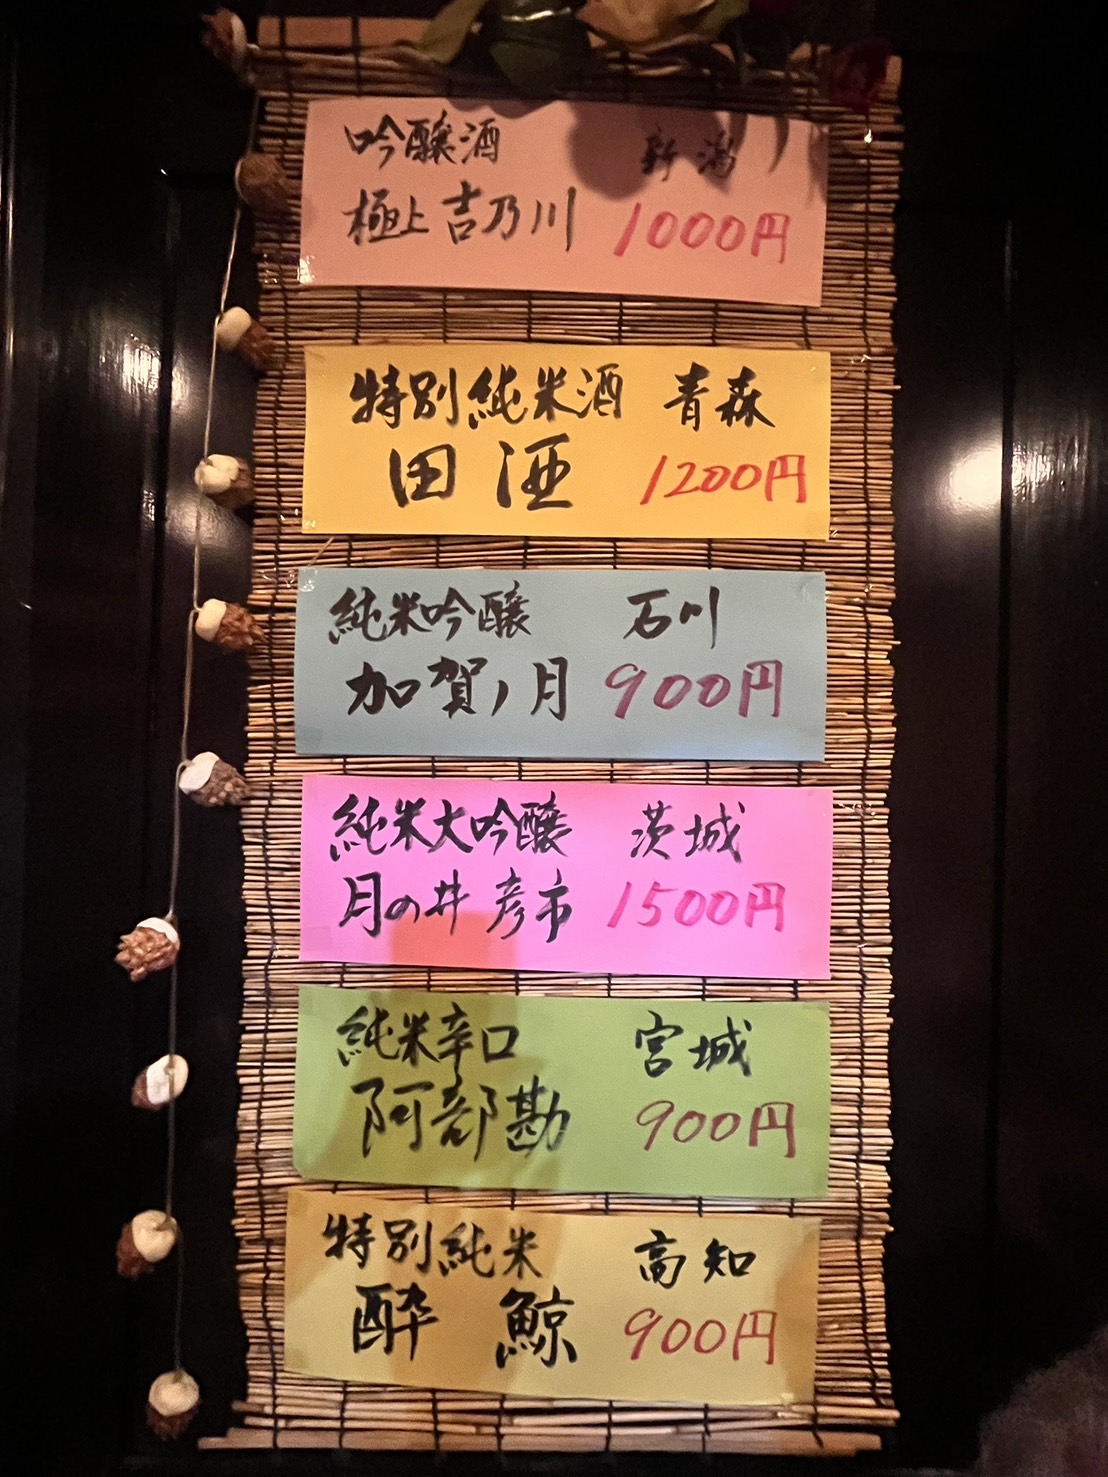 吟醸酒 新潟
極上吉乃川 1000円
特別純米酒 青森
田酒 1200円
純米吟醸 石川
加賀ノ月 900円
純米大吟醸 茨城
月の井 彦市 1500円
純米辛口 宮城
阿部勘 900円
特別純米 高知
酔鯨 900円